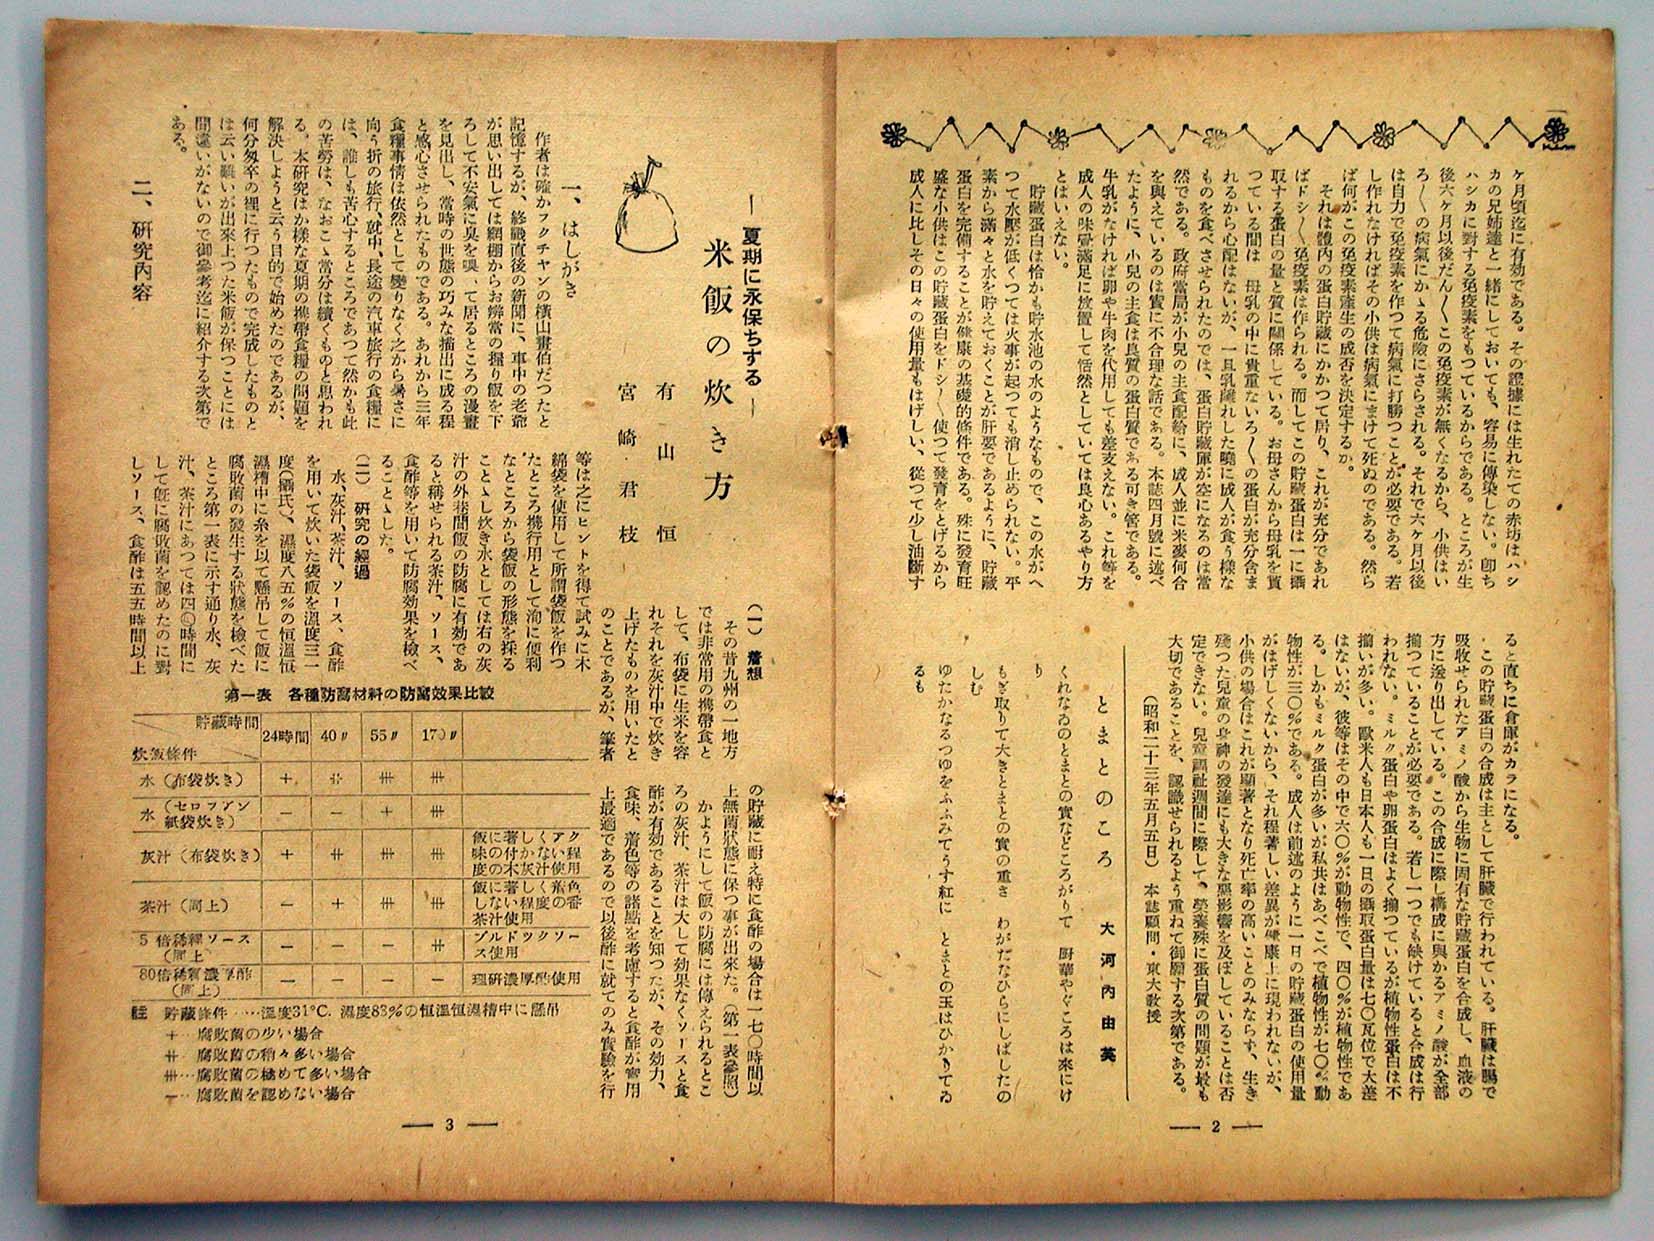 ケ月頃迄に有効である。その證據には生れたての赤坊はハシ
カの兄姉達と一緒にしておいても、容易に傳染しない。卽ち
ハシカに對する免疫素をもつているからである。ところが生
後六ケ月以後だん〱この免疫素が無くなるから、小供はい
ろ〱の病氣にかゝる危險にさらされる。それで六ケ月以後
は自力で免疫素を作つて病氣に打勝つことが必要である。若
し作れなければその小供は病氣にまけて死ぬのである。然ら
ば何がこの免疫素產生の成否を決定するか。
それは體內の蛋白貯藏にかかつて居り、これが充分であれ
ばドシ〱免疫素は作られる。而してこの貯藏蛋白は一に攝
取する蛋白の量と質に關係している。お母さんから母乳を貰
つている間は 母乳の中に貴重ないろ〱の蛋白が充分含ま
れるから心配はないが、一旦乳離れした曉に成人が食う樣な
ものを食べさせられたのでは、蛋白貯藏庫が空になるのは當
然である。政府當局が小兒の主食配給に、成人並に米麥何合
を與えているのは實に不合理な話である。本誌四月號に述べ
たように、小兒の主食は良質の蛋白質である可き筈である。
牛乳がなければ卵や牛肉を代用しても差支えない。これ等を
成人の味覺滿足に放置して恬然としていては良心あるやり方
とはいえない。
貯藏蛋白は恰かも貯水池の水のようなもので、この水がへ
つて水壓が低くつては火事が起つても消し止められない。平
素から滿々と水を貯えておくことが肝要であるように、貯藏
蛋白を完備することが健康の基礎的條件である。殊に發育旺
盛な小供はこの貯藏蛋白をドシ〱使つて發育をとげるから
成人に比しその日々の使用量もはげしい、從つて少し油斷す
ると直ちに倉庫がカラになる。
この貯藏蛋白の合成は主として肝臟で行われている。肝臟は腸で
吸收せられたアミノ酸から生物に固有な貯藏蛋白を合成し、血液の
方に送り出している。この合成に際し構成に與かるアミノ酸が全部
揃つていることが必要である。若し一つでも缺けていると合成は行
われない。ミルク蛋白や卵蛋白はよく揃つているが植物性蛋白は不
揃いが多い。歐米人も日本人も一日の攝取蛋白量は七〇瓦位で大差
はないが、彼等はその中で六〇％が動物性で、四〇％が植物性であ
る。しかもミルク蛋白が多いが私共はあべこべで植物性が七〇％動
物性が三〇％である。成人は前述のように一日の貯藏蛋白の使用量
がはげしくないから、それ程著しい差異が健康上に現われないが、
小供の場合はこれが顯著となり死亡率の高いことのみならず、生き
殘つた兒童の身神の發達にも大きな惡影響を及ぼしていることは否
定できない。兒童福祉週間に際して、榮養殊に蛋白質の問題が最も
大切であることを、認識せられるよう重ねて御願する次第である。
（昭和二十三年五月五日） 本誌顧問・東大敎授
とまとのころ 大河內由英
くれなゐのとまとの實などころがりて 厨華やぐころは來にけ
り
もぎ取りて大きとまとの實の重さ わがたなひらにしばしたの
しむ
ゆたかなるつゆをふふみてうす紅に とまとの玉はひかりてゐ
るも
— 2 —
— 夏期に永保ちする —
米飯の炊き方
有山 恒
宮崎 君枝
一、はしがき
作者は確かフクチヤンの橫山畫伯だつたと
記憶するが、終戰直後の新聞に、車中の老爺
が思い出しては網棚からお辨當の握り飯を下
ろして不安氣に臭を嗅いで居るところの漫畫
を見出し、當時の世態の巧みな描出に成る程
と感心させられたものである。あれから三年
食糧事情は依然として變りなく之から暑さに
向う折の旅行、就中、長途の汽車旅行の食糧に
は、誰しも苦心するところであつて然かも此
の苦勞は、なおこゝ當分は續くものと思われ
る。本研究はか樣な夏期の携帶食糧の問題を
解決しようと云う目的で始めたのであるが、
何分匆卒の裡に行つたもので完成したものと
は云い難いが出來上つた米飯が保つことには
間違いがないので御參考迄に紹介する次第で
ある。
二、硏究內容
（一）着想
その昔九州の一地方
では非常用の携帶食と
して、布袋に生米を容
れそれを灰汁中で炊き
上げたものを用いたと
のことであるが、筆者
等は之にヒントを得て試みに木
綿袋を使用して所謂袋飯を作つ
たところ携行用として洵に便利
なところから袋飯の形態を採る
ことゝし炊き水としては右の灰
汁の外巷間飯の防腐に有効であ
ると稱せられる茶汁、ソース、
食酢等を用いて防腐効果を檢べ
ることゝした。
（二）研究の經過
水、灰汁、茶汁、ソース、食酢
を用いて炊いた袋飯を溫度三一
度（攝氏）、濕度八五％の恒溫恒
濕槽中に糸を以て懸吊して飯に
腐敗菌の發生する狀態を檢べた
ところ第一表に示す通り水、灰
汁、茶汁にあつては四〇時間に
して旣に腐敗菌を認めたのに對
しソース、食酢は五五時間以上
の貯藏に耐え特に食酢の場合は一七〇時間以
上無菌狀態に保つ事が出來た。（第一表參照）
かようにして飯の防腐には傳えられるとこ
ろの灰汁、茶汁は大して効果なくソースと食
酢が有効であることを知つたが、その効力、
食味、着色等の諸點を考慮すると食酢が實用
上最適であるので以後酢に就てのみ實驗を行
第一表 各種防腐材料の防腐効果比較
貯藏時間 炊飯條件 24時間 40〃 55〃 170〃
水（布袋炊き） ＋ ⧺ ⧻ ⧻
水（セロフアン紙袋炊き） － － ＋ ⧻
灰汁（布袋炊き） ＋ ⧺ ⧻ ⧻ 飯に著しくアク味の付かない程度の木灰汁使用
茶汁（同上） － ＋ ⧻ ⧻ 飯に著しく着色しない程度の番茶汁使用
5倍稀釋ソース（同上） － － － ⧺ ブルドックソース使用
80倍稀釋濃厚酢（同上） － － － － 理研濃厚酢使用
註 貯藏條件……溫度31°C. 濕度83％の恒溫恒濕槽中に懸吊
＋…腐敗菌の少い場合
⧺…腐敗菌の稍々多い場合
⧻…腐敗菌の極めて多い場合
－…腐敗菌を認めない場合
— 3 —